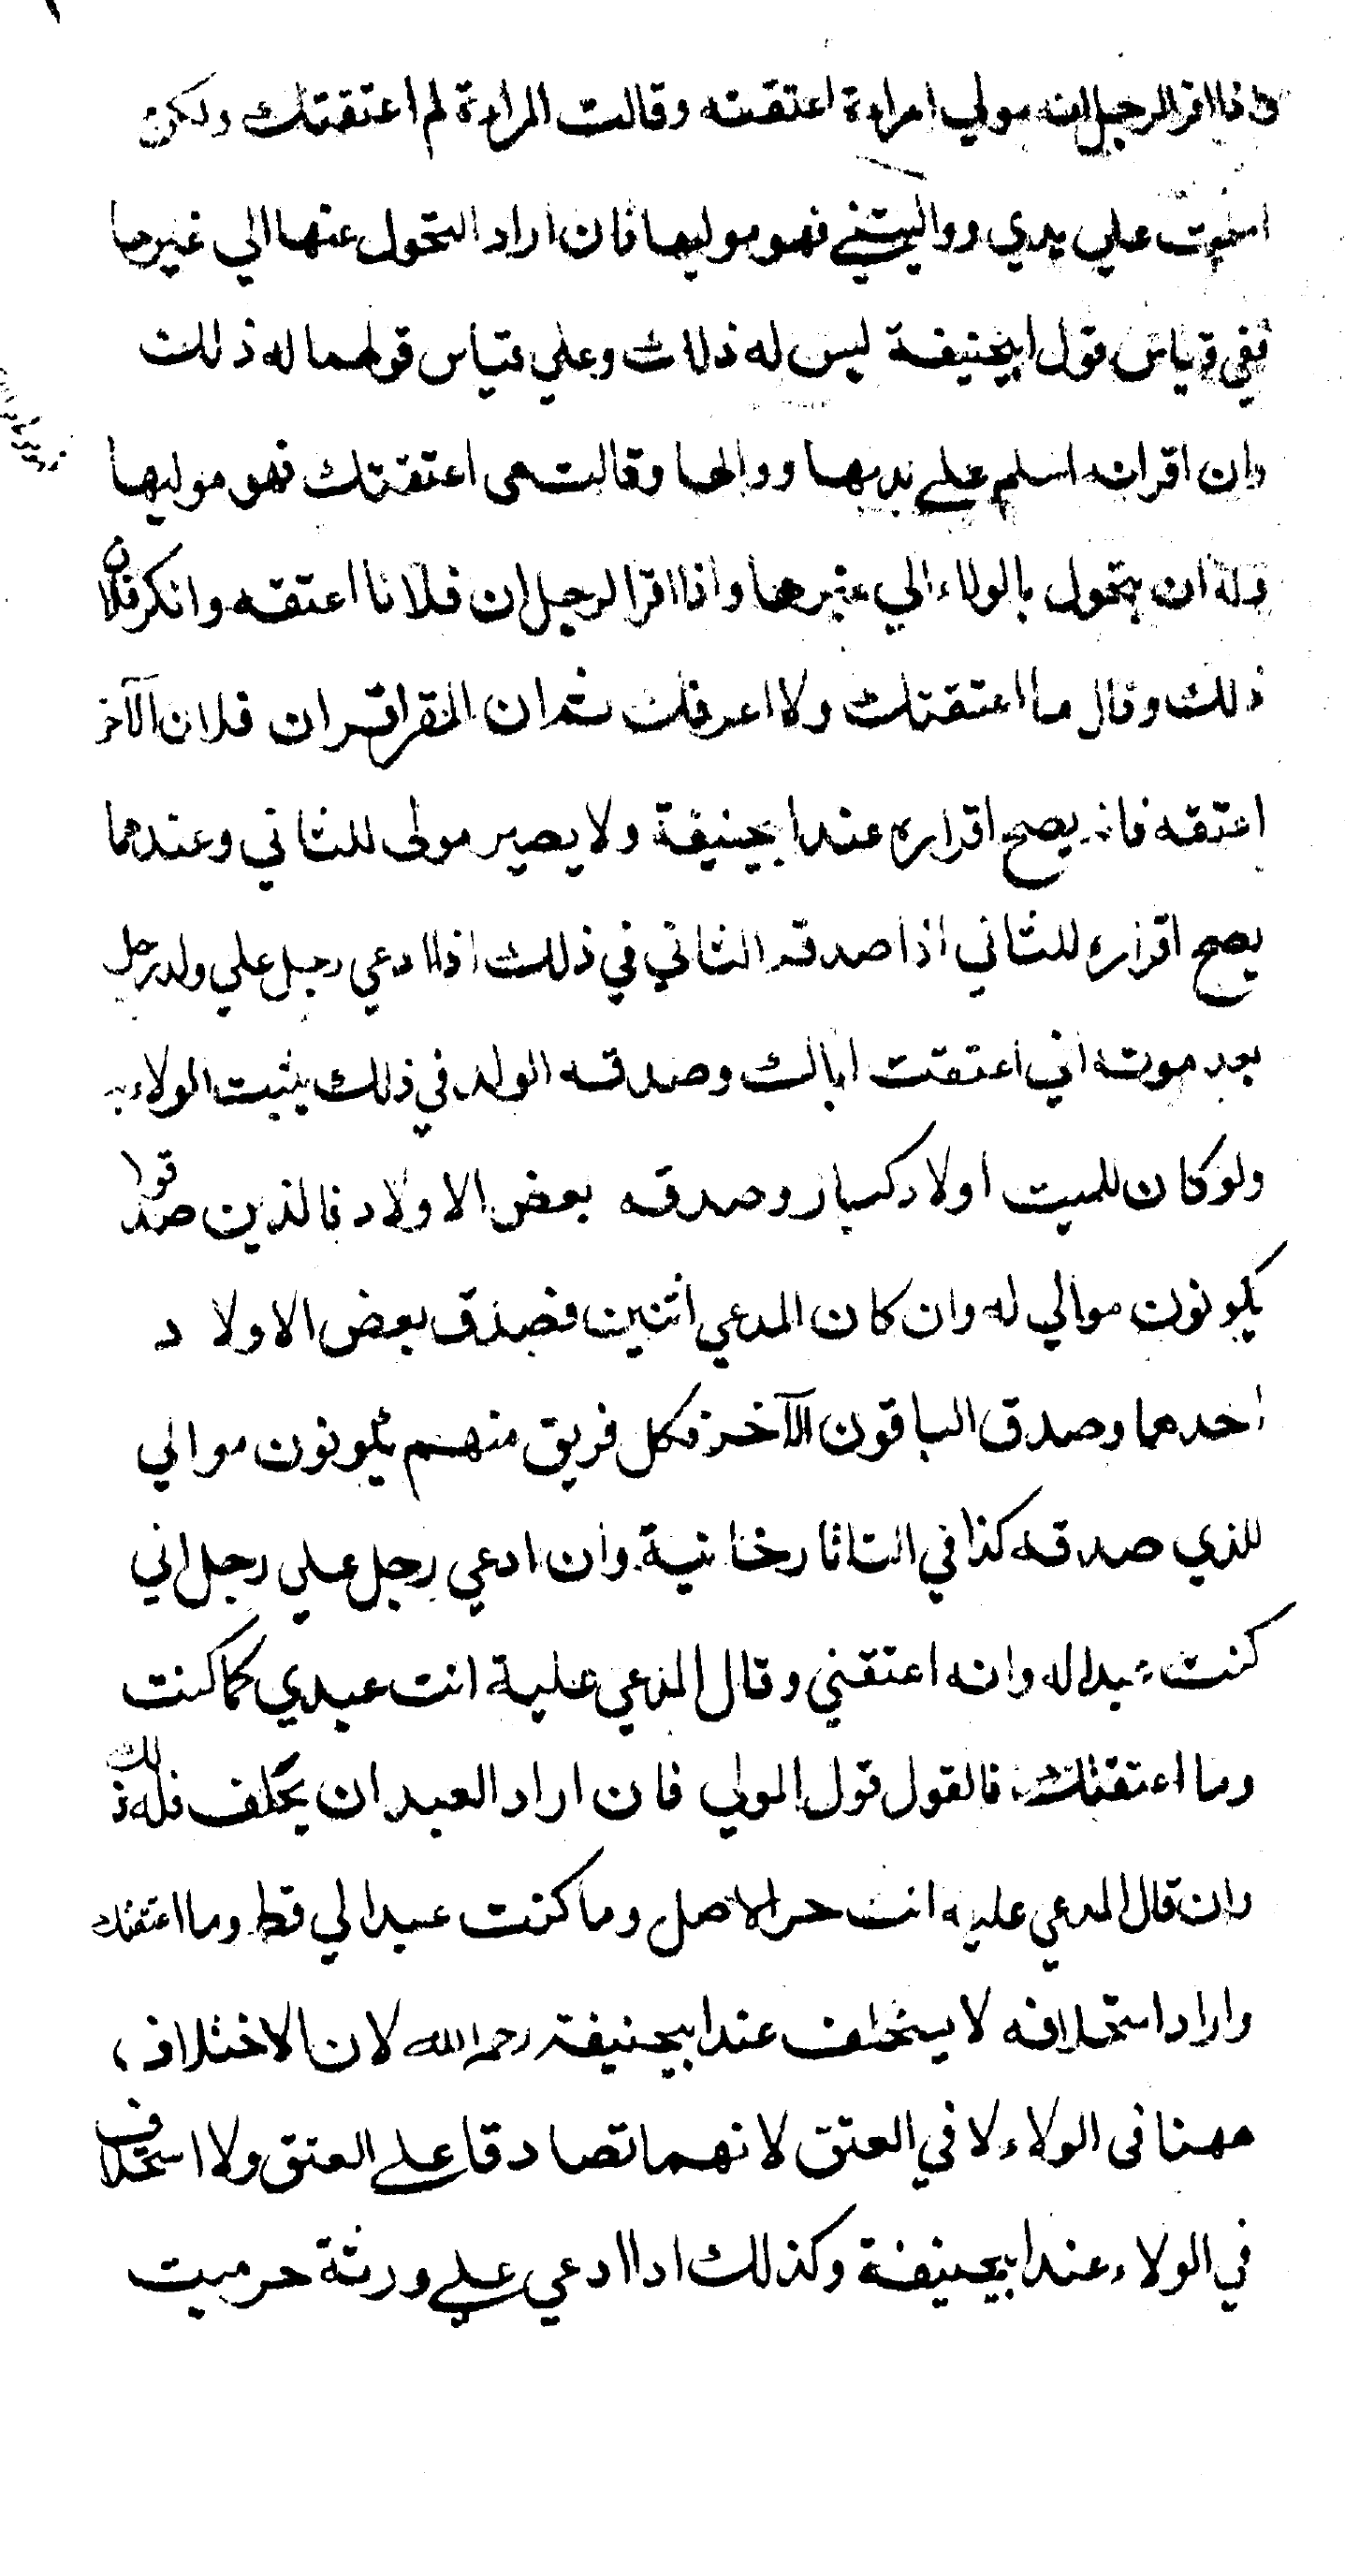 واذا اقر الرجل انه مولي امراءة اعتقته وقالت المراءة لم اعتقتك ولكن
اسلمت علي يدي وواليتني فهو موليها فان اراد التحول عنها الي غيرها
ففي قياس قول ابيحنيفة ليس له ذلك وعلي قياس قولهما له ذلك
وان اقر انه اسلم علي يديها ووالها وقالت هى اعتقتك فهو موليها
وله ان يتحول بالولاء الي غيرها واذا اقر الرجل ان فلانا اعتقه وانكر فلان
ذلك وقال ما اعتقتك ولا اعرفك ثم ان المقر اقر ان فلان الآخر
اعتقه فانه يصح اقراره عند ابيحنيفة ولا يصير مولى للثاني وعندهما
يصح اقراره للثاني اذا صدقه الثاني في ذلك اذا ادعي رجل علي ولد رجل
بعد موته اني اعتقت اباك وصدقه الولد في ذلك يثبت الولاء به
ولو كان للميت اولاد كبار وصدقه بعض الاولاد فالذين صدقوا
يكونون موالي له وان كان المدعي اثنين فصدق بعض الاولاد
احدهما وصدق الباقون الآخر فكل فريق منهم يكونون موالي
للذي صدقه كذا في التاتارخانية وان ادعي رجل علي رجل اني
كنت عبدا له وانه اعتقني وقال المدعي علية انت عبدي كما كنت
وما اعتقتك فالقول قول المولي فان اراد العبد ان يحلف فله ذلك
وان قال المدعي عليه انت حر الاصل وما كنت عبدا لي قط وما اعتقتك
واراد استحلافه لا يستحلف عند ابيحنيفة رحمه الله لان الاختلاف
ههنا فى الولاء لا في العتق لانهما تصادقا علي العتق ولا استحلاف
في الولاء عند ابيحنيفة وكذلك ادا ادعي علي ورثة حر ميت